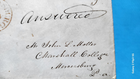 Answered
Mr John L. Motter
Marshall College
Mercersburg
Pa